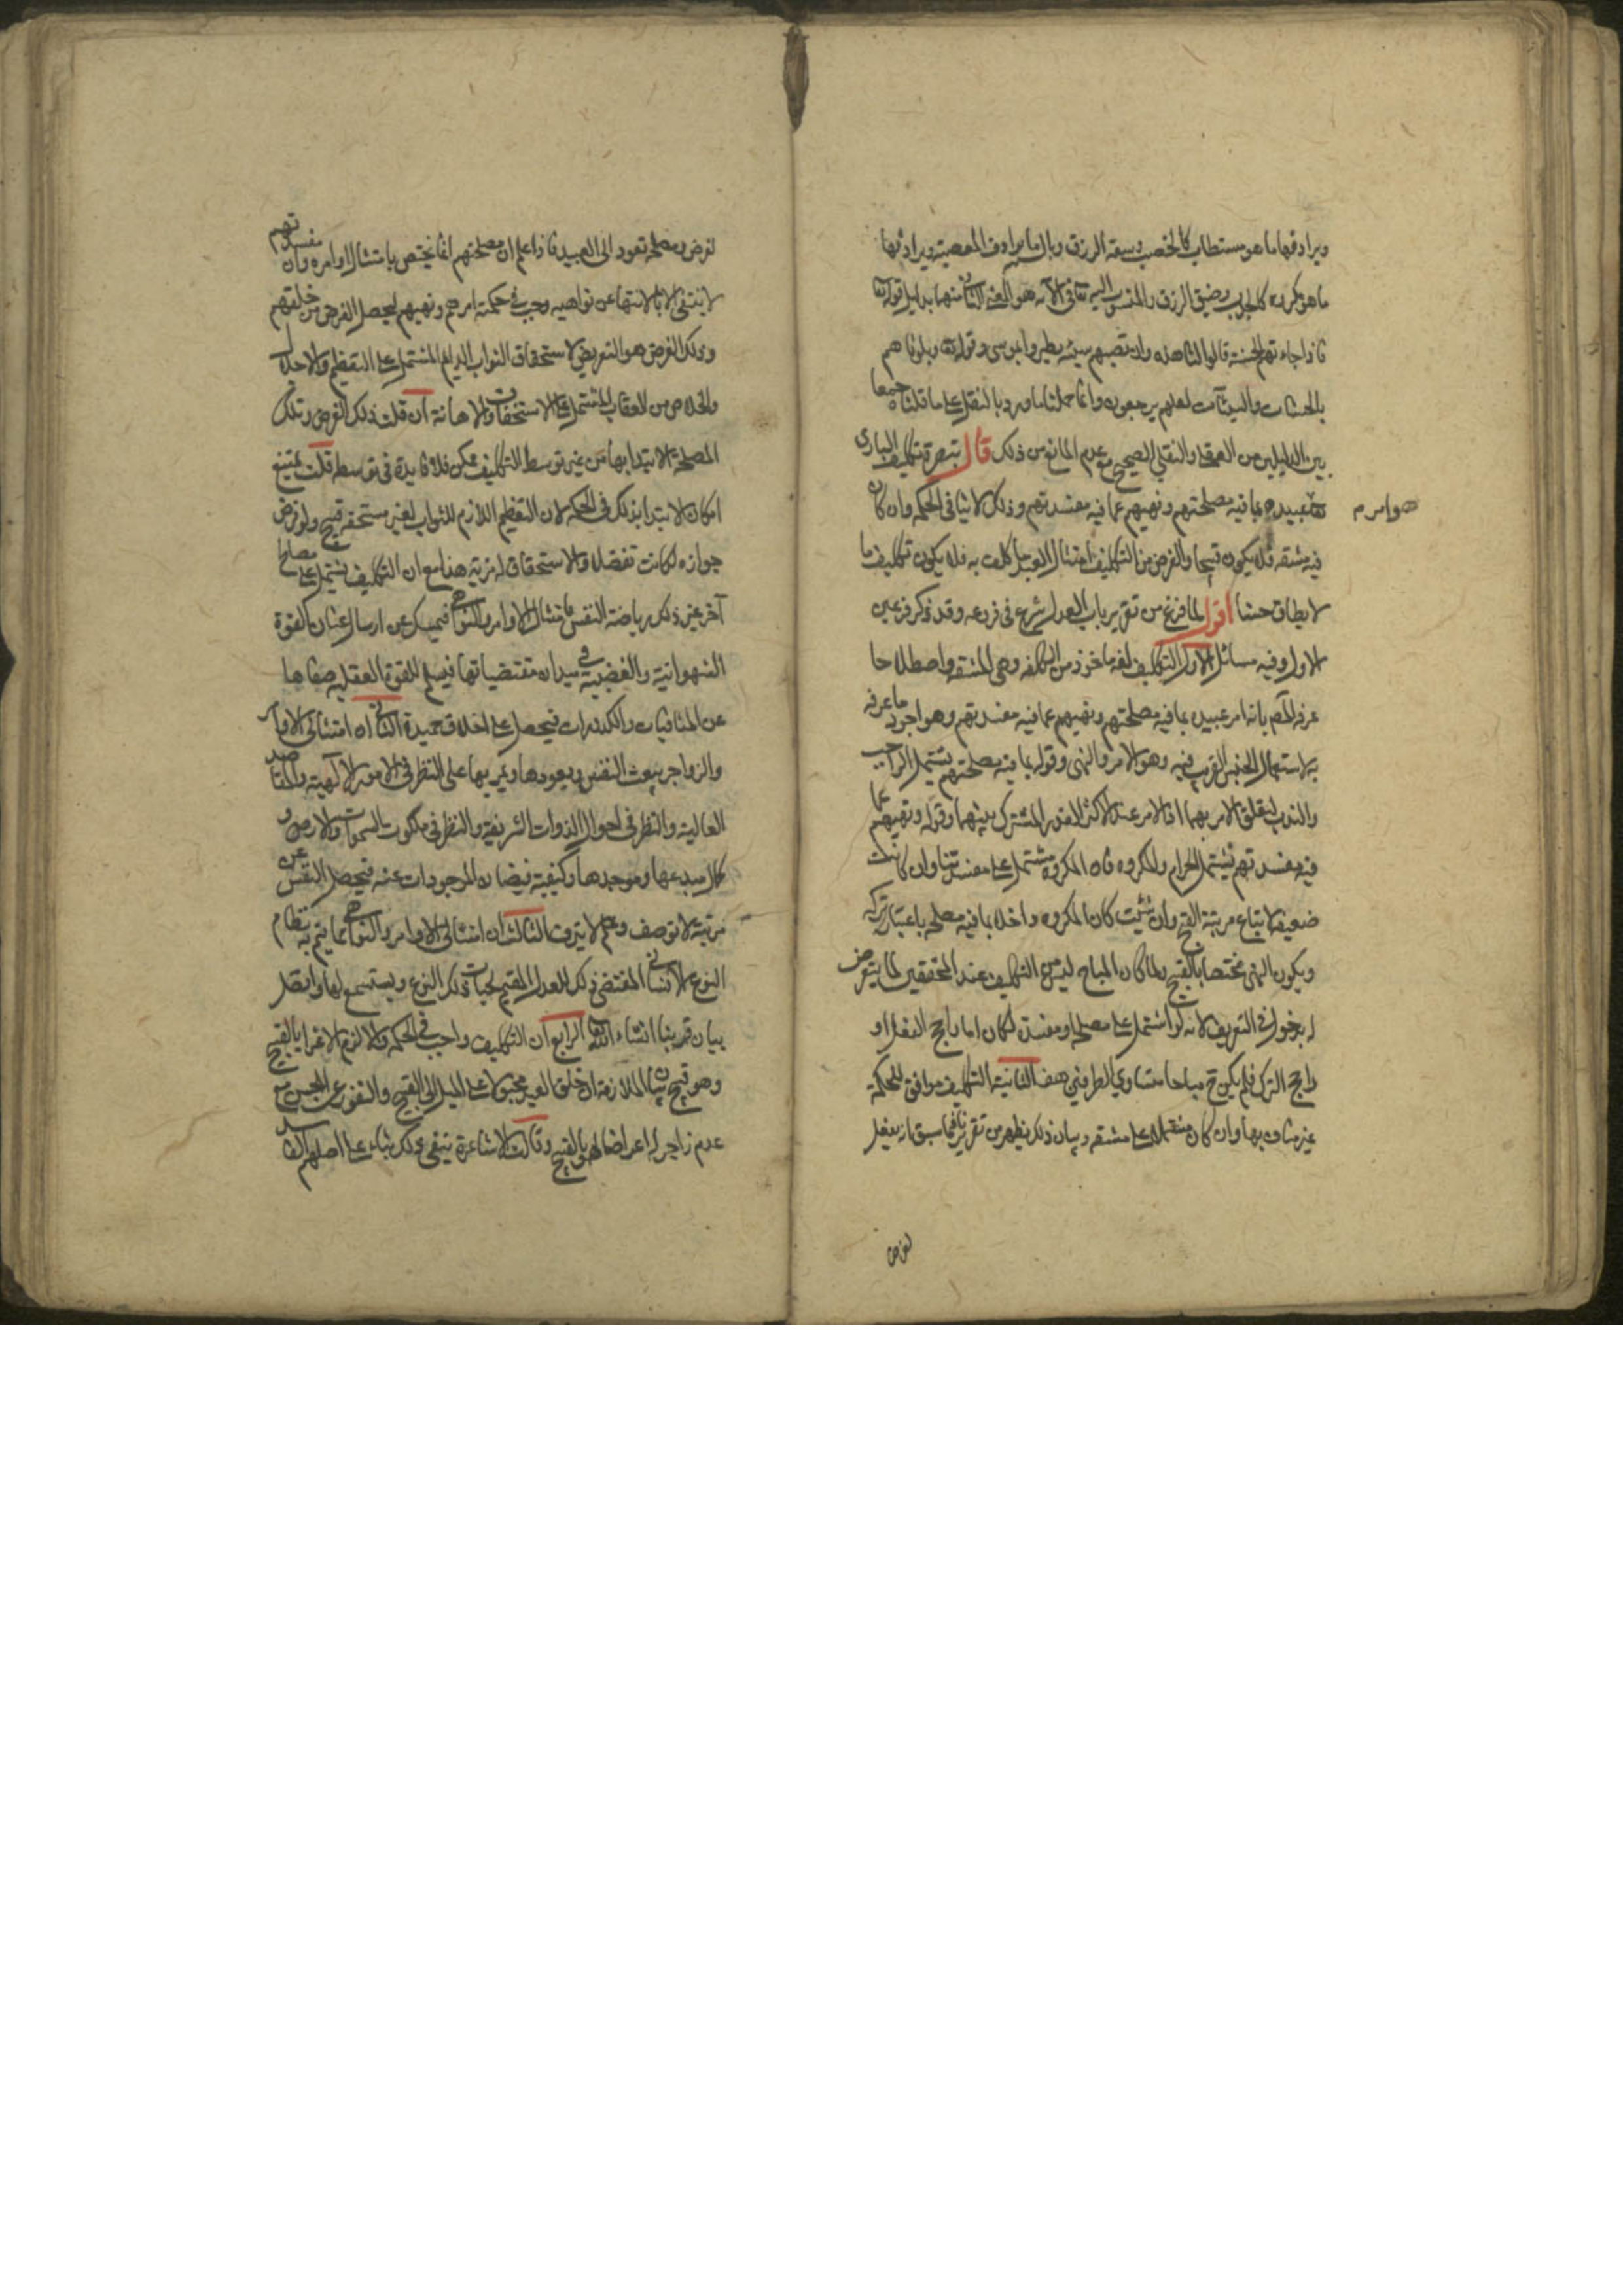 ويرادفها ما هو مستطاب كالخصب وسعة الرزق وبال ما يرادف المعصية ويرادفها
ما هو مكروه كالجدب وضيق الرزق والمنسوب اليه تعالى في الآية هو المعنى الثاني منهما بدليل قوله تعالى
فاذا جاءتهم الحسنة قالوا لنا هذه وان تصبهم سيئة يطيروا بموسى وقوله تعالى وبلوناهم
بالحسنات والسيئات لعلهم يرجعون وانما حملنا ما ورد بالنقل على ما قلناه جمعا
بين الدليلين من العقلي والنقلي الصحيح مع عدم المانع من ذلك قال تبصرة تكليف الباري
تعالى عبيده بما فيه مصلحتهم ونهيهم عما فيه مفسدتهم وذلك لا ينافي الحكمة وان كان
هو امر م
فيه مشقة فلا يكون قبيحا والغرض من التكليف امتثال العبد ما كلف به فلا يكون تكليف ما
لا يطاق حسنا اقول لما فرغ من تقرير باب العدل شرع في فروعه وقد ذكر فرعين
الاول وفيه مسائل الاول التكليف لغة ماخوذ من الكلفة وهي المشقة واصطلاحا
عرفه المص بانه امر عبيده بما فيه مصلحتهم ونهيهم عما فيه مفسدتهم وهو اجود ما عرف
به لاستعمال الجنس القريب فيه وهو الامر والنهي وقوله بما فيه مصلحتهم يشتمل الواجب
والندب لتعلق الامر بهما اذ الامر عند الاكثر للقدر المشترك بينهما وقوله ونهيهم عما
فيه مفسدتهم يشتمل الحرام والمكروه فان المكروه مشتمل على مفسدة ما وان كانت
ضعيفة لا تبلغ مرتبة القبح وان شئت كان المكروه داخلا بما فيه مصلحة باعتبار تركه
ويكون النهي مختصا بالقبيح ولما كان المباح ليس من التكليف عند المحققين لما يتعرض
له بدخول في التعريف لانه لو اشتمل على مصلحة او مفسدة لكان اما راجح الفعل او
راجح الترك فلم يكن ح مباحا متساوي الطرفين هف الثانية التكليف موافق للحكمة
غير مناف بها وان كان مشتملا على مشقة وبيان ذلك يظهر من تقرير ما سبق انه يفعل
لغرض
لغرض ومصلحة تعود الى العبيد فاذا علم ان مصلحتهم انما يختص بامتثال اوامره وان مفسدتهم
لا ينتفي الا بالانتهاء عن نواهيه وجب في حكمته امرهم ونهيهم ليحصل الغرض من خلقهم
وذلك الغرض هو التعريض لاستحقاق الثواب الدايم المشتمل على التعظيم والاجلال
والخلاص من العقاب المشتمل على الاستخفاف والاهانة ان قلت ذلك الغرض وتلك
المصلحة الابتداء بها من غير توسط التكليف ممكن فلا فايدة في توسطه قلت يمتنع
امكان الابتداء بذلك في الحكمة لان التعظيم اللازم للثواب لغير مستحقه قبيح ولو فرض
جوازه لكانت تفضلا والاستحقاق له مزية هذا مع ان التكليف يشتمل على مصالح
آخر غير ذلك رياضة النفس بامتثال الاوامر والنواهي فيمسك عن ارسال عنان القوة
الشهوانية والغضبية في ميدان مقتضياتها فيسلم للقوة العقلية صفاها
عن المنافيات والكدورات فيحصل على اخلاق حميدة الثاني ان امتثال الاوامر
والزواجر يبعث النفس ويعودها ويمرنها على النظر في الامور الالهية والمقاصد
العالية والنظر في احوال الذوات الشريفة والنظر في ملكوت السموات والارض و
كمال مبدعها وموجدها وكيفية فيضان الموجودات عنه فيحصل النفس من
مرتبة لا توصف وعلم لا ينزف الثالث ان امتثال الاوامر والنواهي مما يتم به نظام
النوع الانساني المقتضي ذلك للعدل المقيم لحيات ذلك النوع ويستسمع لها وايصل
بيان قريبا انشاء الله تعالى الرابع ان التكليف واجب في الحكمة والا لزم الاغراء بالقبيح
وهو قبيح بيان الملازمة ان خلق العبد مجبولا على الميل الى القبيح والنفور عن الحسن مع
عدم زاجر له اغراء له بالقبيح وقالت الاشاعرة ينفي ذلك بناء على اصلهم الفاسد